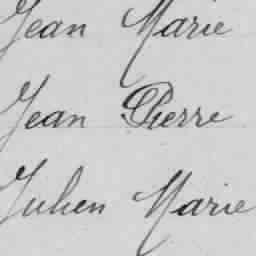 Jean Marie
Jean Pierre
Julien Marie